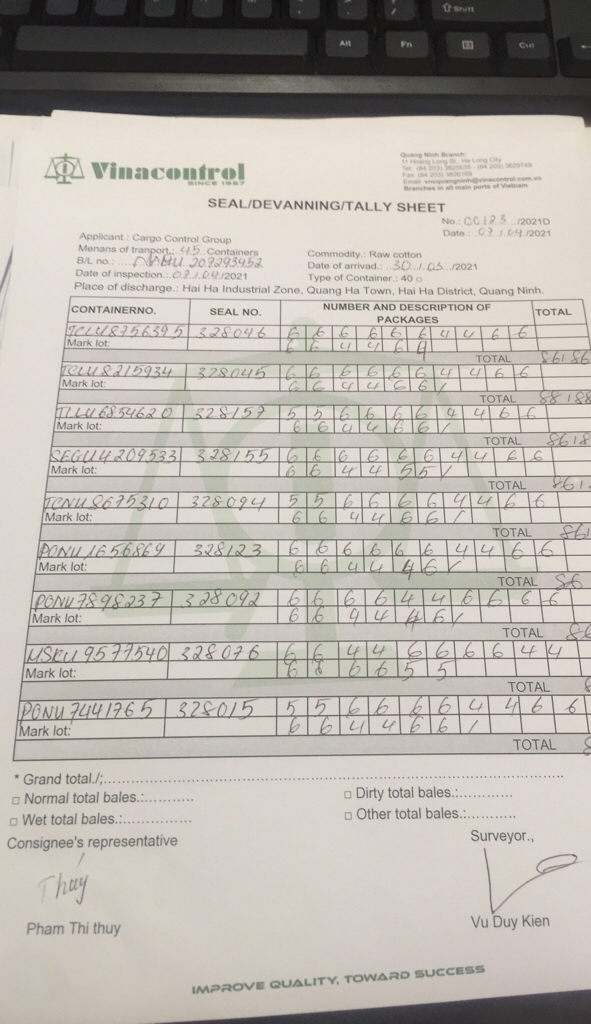 Shift
Alt
Fn
Ctrl
Vinacontrol
SINCE 1957
Quang Ninh Branch:
11 Hoang Long St. Ha Long City
Branches in all main ports of Vietnam
SEAL/DEVANNING/TALLY SHEET
No.: CC123 /2021D
Date: 07/04/2021
Applicant.: Cargo Control Group
Menans of tranport.: 45 Containers
Commodity.: Raw cotton
B/L no.: 209293452
Date of arrivad.: 30/03 /2021
Date of inspection.: 07/04/2021
Type of Container.: 40
Place of discharge.: Hai Ha Industrial Zone, Quang Ha Town, Hai Ha District, Quang Ninh.
CONTAINERNO. SEAL NO. NUMBER AND DESCRIPTION OF PACKAGES TOTAL
TCLU8756395 328046 6 6 6 6 6 6 4 4 6 6
Mark lot: 6 6 4 4 6 4
TOTAL 86/86
TCLU8215934 328045 6 6 6 6 6 6 4 4 6 6
Mark lot: 6 6 4 4 6 6 /
TOTAL 88/88
328157 5 5 6 6 6 6 4 4 6 6
Mark lot: 6 6 4 4 6 6 /
TOTAL
SEGU4209533 328155 6 6 6 6 6 6 4 4 6 6
Mark lot: 6 6 4 4 5 5 /
TOTAL
TCNU8675310 328094 5 5 6 6 6 6 4 4 6 6
Mark lot: 6 6 4 4 6 6 /
TOTAL
PONU1656869 328123 6 6 6 6 6 6 4 4 6 6
Mark lot: 6 6 4 4 4 6 /
TOTAL 86
PONU7898237 328092 6 6 6 6 4 4 6 6 6 6
Mark lot: 6 6 4 4 4 6 /
TOTAL 86
MSKU9577540 328076 6 6 4 4 6 6 6 6 4 4
Mark lot: 6 6 6 6 5 5
TOTAL 8
PONU7441765 328015 5 5 6 6 6 6 4 4 6 6
Mark lot: 6 6 4 4 6 6 /
TOTAL 8
* Grand total./;
□ Normal total bales.:
□ Dirty total bales.:
□ Wet total bales.:
□ Other total bales.:
Consignee's representative
Surveyor.,
Thuy
Pham Thi thuy
Vu Duy Kien
IMPROVE QUALITY, TOWARD SUCCESS